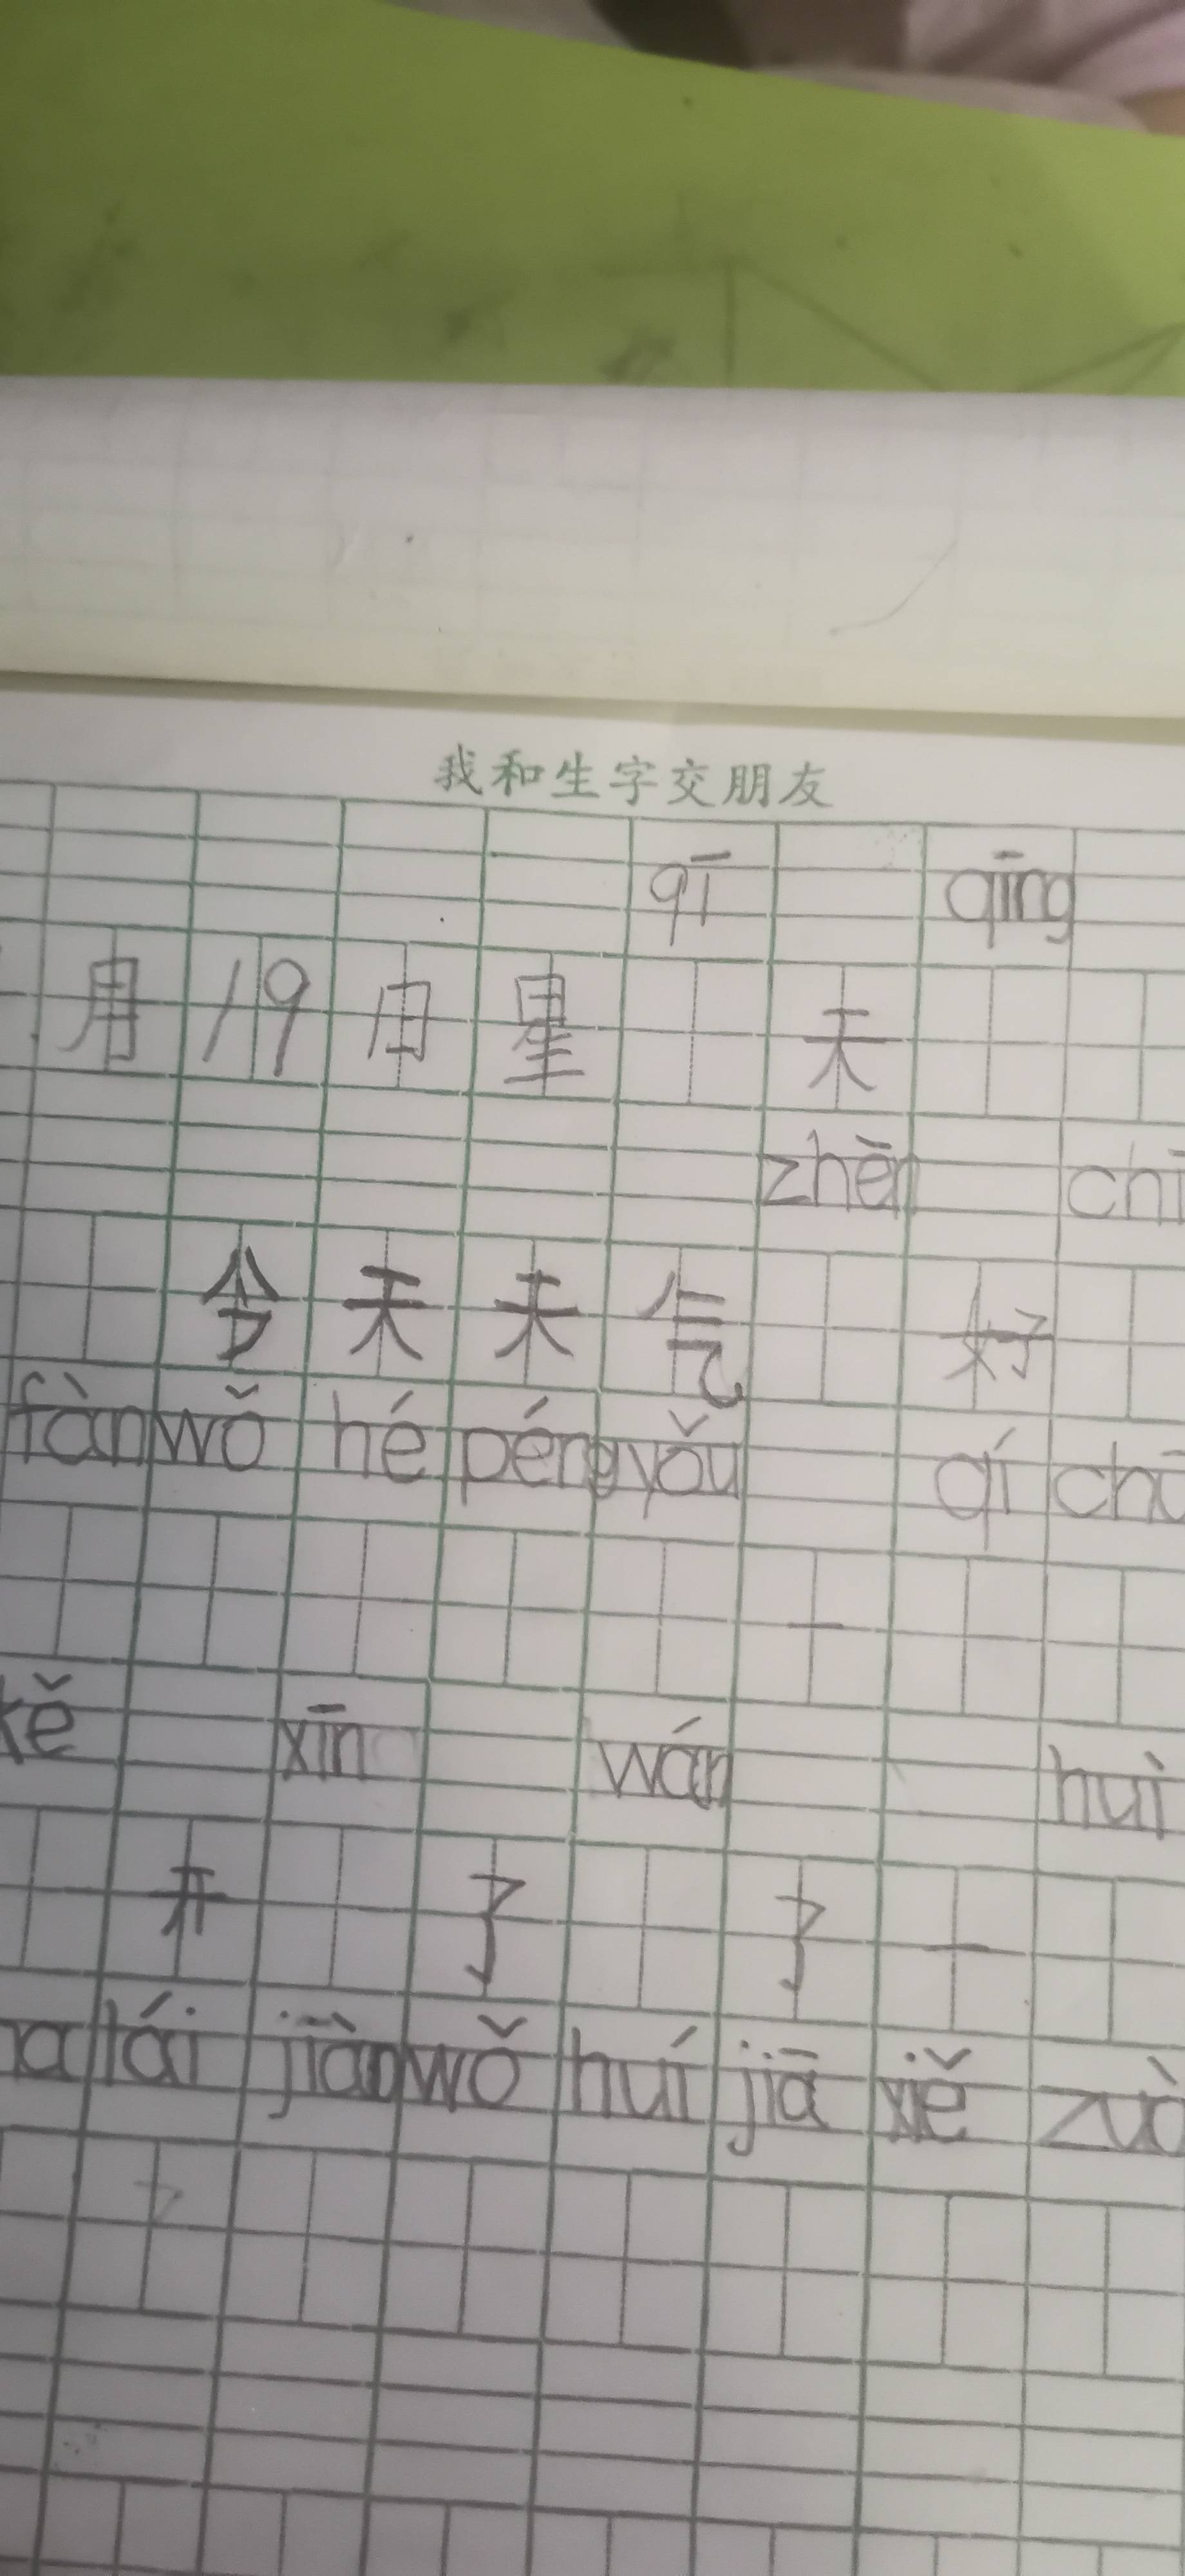 我和生字交朋友
qī qīng
月 19 日 星 天
zhēn chī
今 天 天 气 好
fàn wǒ hé péng yǒu qí chū
一
kě xīn wán huì
开 了 了 一
tái jiàn wǒ huí jiā xiě zuò